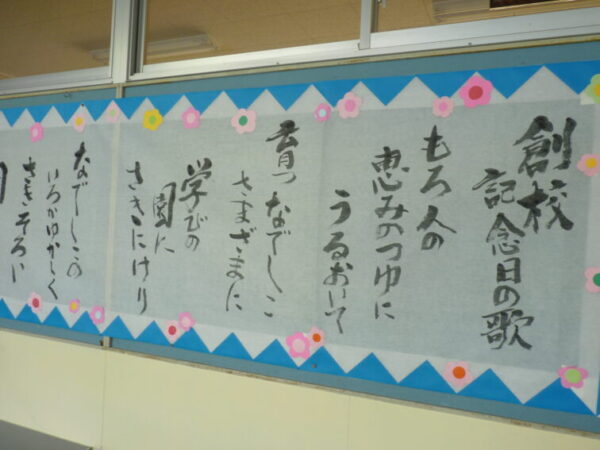 創校
記念日の歌
もろ人の
恵みのつゆに
うるおいて
育つなでしこ
さまざまに
学びの
園に
さきにけり
なでしこの
いろかゆかしく
さきそろい